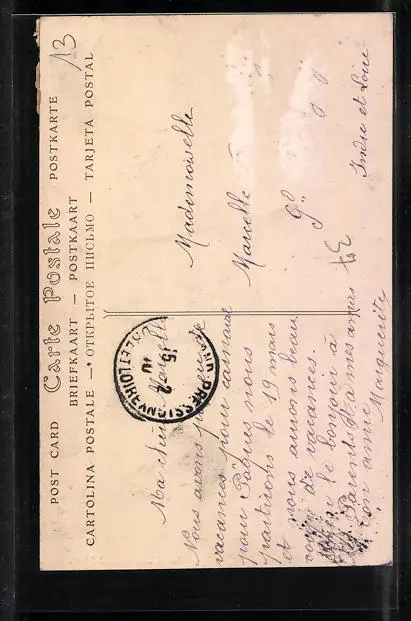 13
POST CARD Carte Postale POSTKARTE
BRIEFKAART — POSTKAART
CARTOLINA POSTALE — ОТКРЫТОЕ ПИСЬМО — TARJETA POSTAL
Ma chère Marcelle
Nous avons
vacances pour carnaval
pour Pâques nous
partirons le 19 mars
et nous aurons beau
de vacances.
le bonjour à
Parents et à mes amies
ton amie
Marguerite
GRAND-PRESSIGNY
INDRE-ET-LOIRE
15 2 10
Mademoiselle
Marcelle
Gd
Indre et Loire